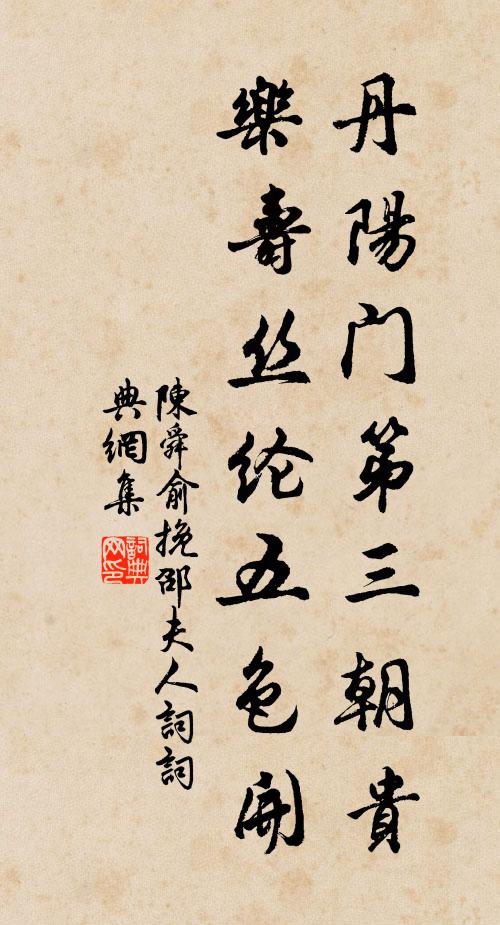 丹陽门第三朝貴
樂壽丝纶五色開
陳舜俞挽邵夫人詞詞
典網集
詞典网印